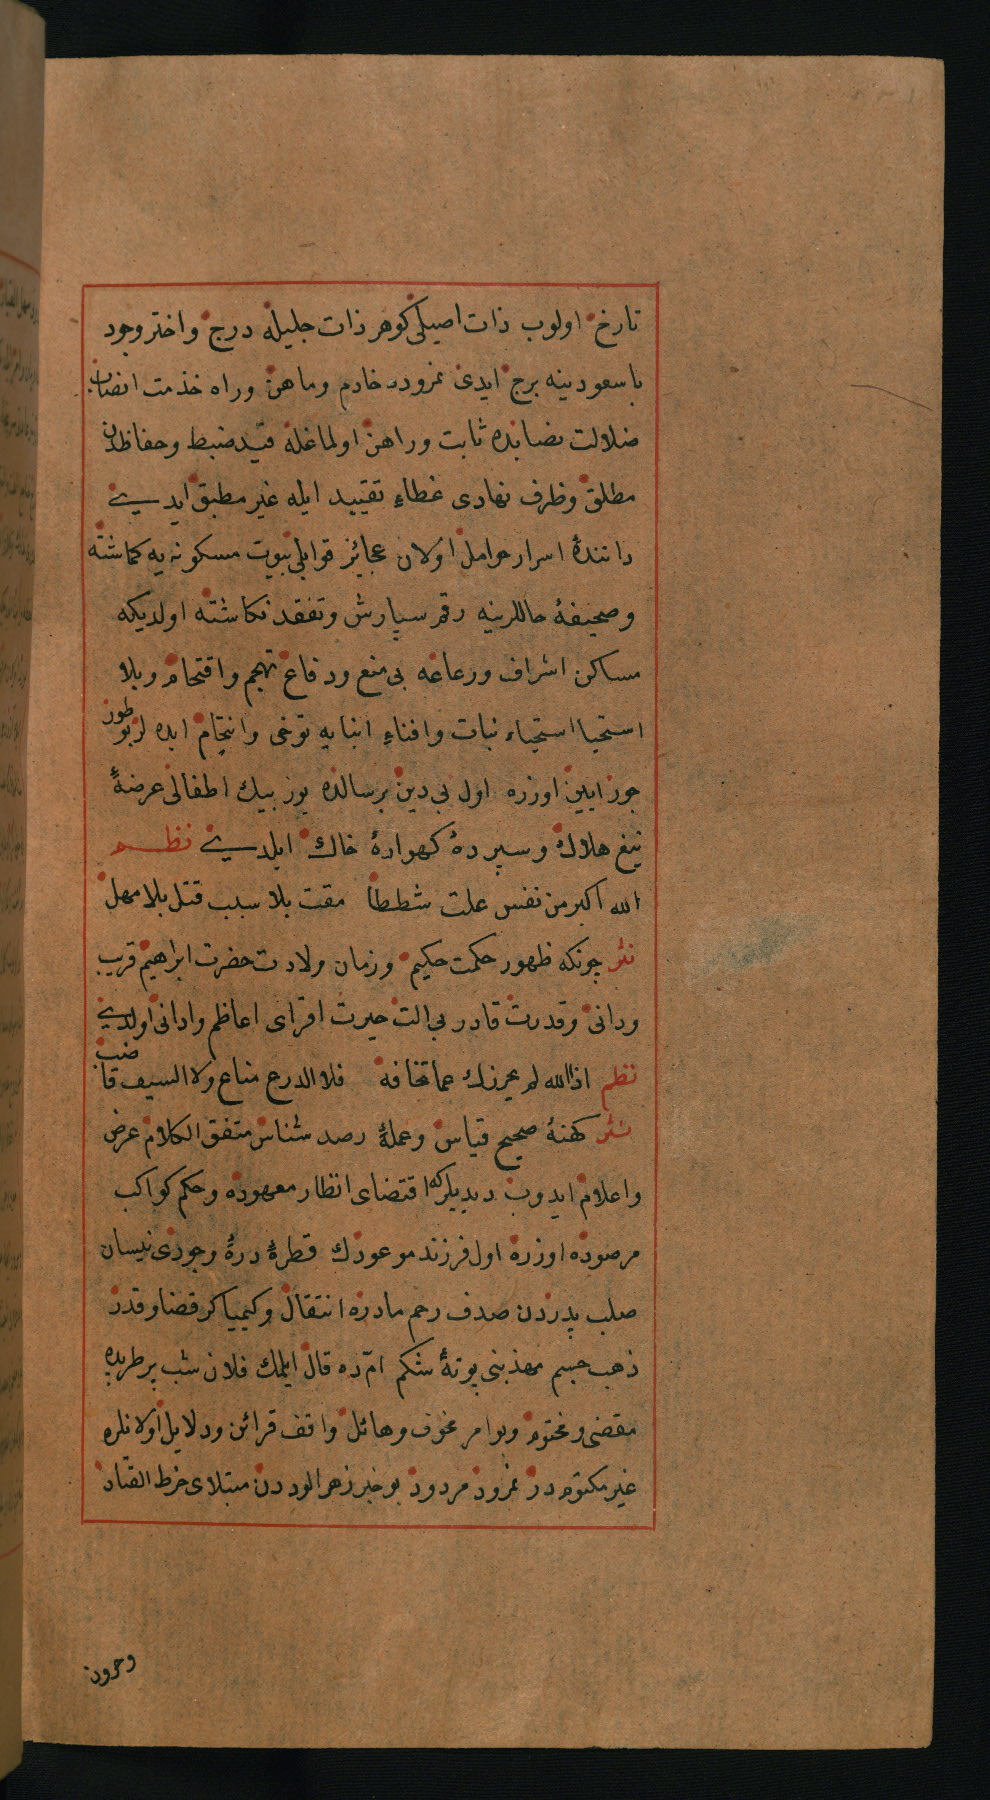 تارخ اولوب ذات اصیلی کوهر ذات جلیله درج واختر وجود
با سعودینه برج ایدی نمروده خادم وماهن وراه خذمت انصاب
ضلالت نصابنده ثابت وراهن اولماغله قید ضبط وحفاظدن
مطلق وظرف نهادی غطاء تقیید ایله غیر مطبق ایدی
دانندۀ اسرار حوامل اولان عجائز قوابلی بیوت مسکونه یه کماشته
وصحیفۀ حاللرینه رقم سپارش وتفقد نکاشته اولدیکه
مساکن اشراف ورعاعه بی منع ودفاع تهجم واقتحام وبلا
استحیا استحیاء بنات وافناء ابنایه توخی وانتحام ایده لر بو طور
جور ایین اوزره اول بی دین برسالده یوز بیک اطفالی عرضۀ
تیغ هلاک وسپردۀ کهوارۀ خاک ایلدی نظم
الله اکبر من نفس علت شططا مقت بلا سبب قتل بلا مهل
نثر چونکه ظهور حکمت حکیم وزمان ولادت حضرت ابراهیم قریب
ودانی وقدرت قادر بی الت حیرت افزای اعاظم وادانی اولدی
نظم اذا الله لم یحرزک عما تخافه فلا الدرع مناع ولا السیف قاضب
نثر کهنۀ صحیح قیاس وعملۀ رصد شناس متفق الکلام عرض
واعلام ایدوب دیدیلرکه اقتضای انظار معهوده وحکم کواکب
مرصوده اوزره اول فرزند موعودک قطرۀ درۀ وجودی نیسان
صلب پدردن صدف رحم مادره انتقال وکیمیاکر قضا وقدر
ذهب جسم مهذبنی بوتۀ شکم امّ ده قال ایلمک فلان شب پرطربده
مقضی ومحتوم وبو امر مخوف وهائل واقف قرائن ودلایل اولانلره
غیر مکتومدر نمرود مردود بو خبر زهر الوددن مبتلای خرط القتاد
وحرون